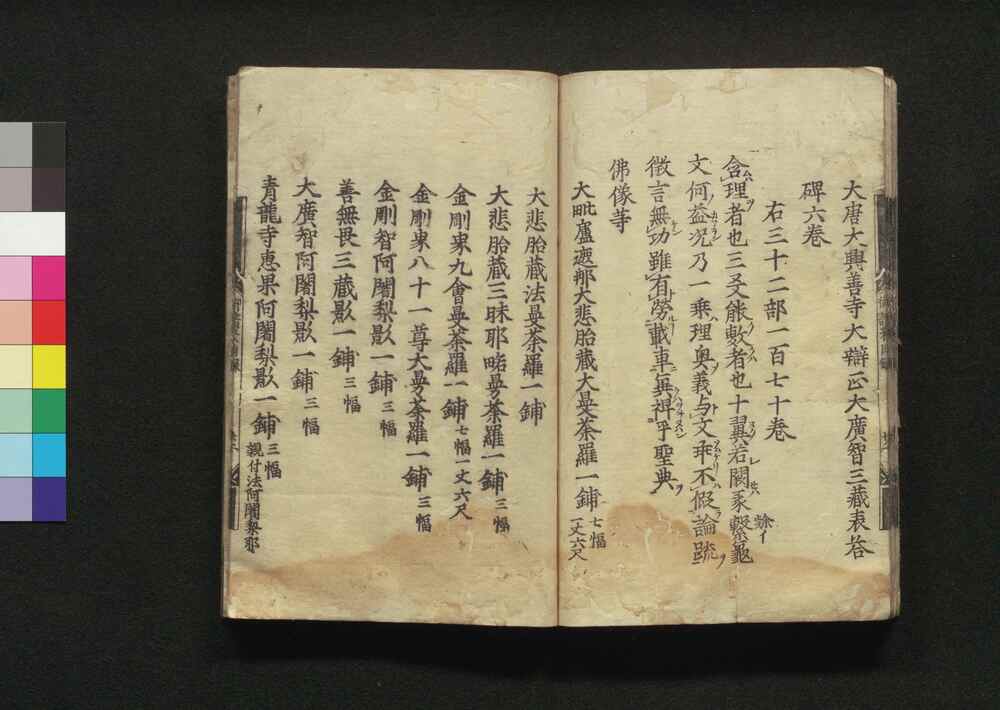 大唐大興善寺大辯正大廣智三藏表荅
碑六卷
右三十二部一百七十卷
含理者也三多能敷者也十翼若闕爻繋龜
文何益況乃一乗理奥義与文乖不假論䟽
微言無功雖有勞載車無裨乎聖典
佛像等
大毗盧遮那大悲胎藏大曼荼羅一鋪 七幅一丈六尺
大悲胎藏法曼荼羅一鋪
大悲胎藏三昧耶略曼荼羅一鋪 三幅
金剛界九會曼荼羅一鋪 七幅一丈六尺
金剛界八十一尊大曼荼羅一鋪 三幅
金剛智阿闍梨影一鋪 三幅
善無畏三藏影一鋪 三幅
大廣智阿闍梨影一鋪 三幅
青龍寺惠果阿闍梨影一鋪 三幅
親付法阿闍梨耶